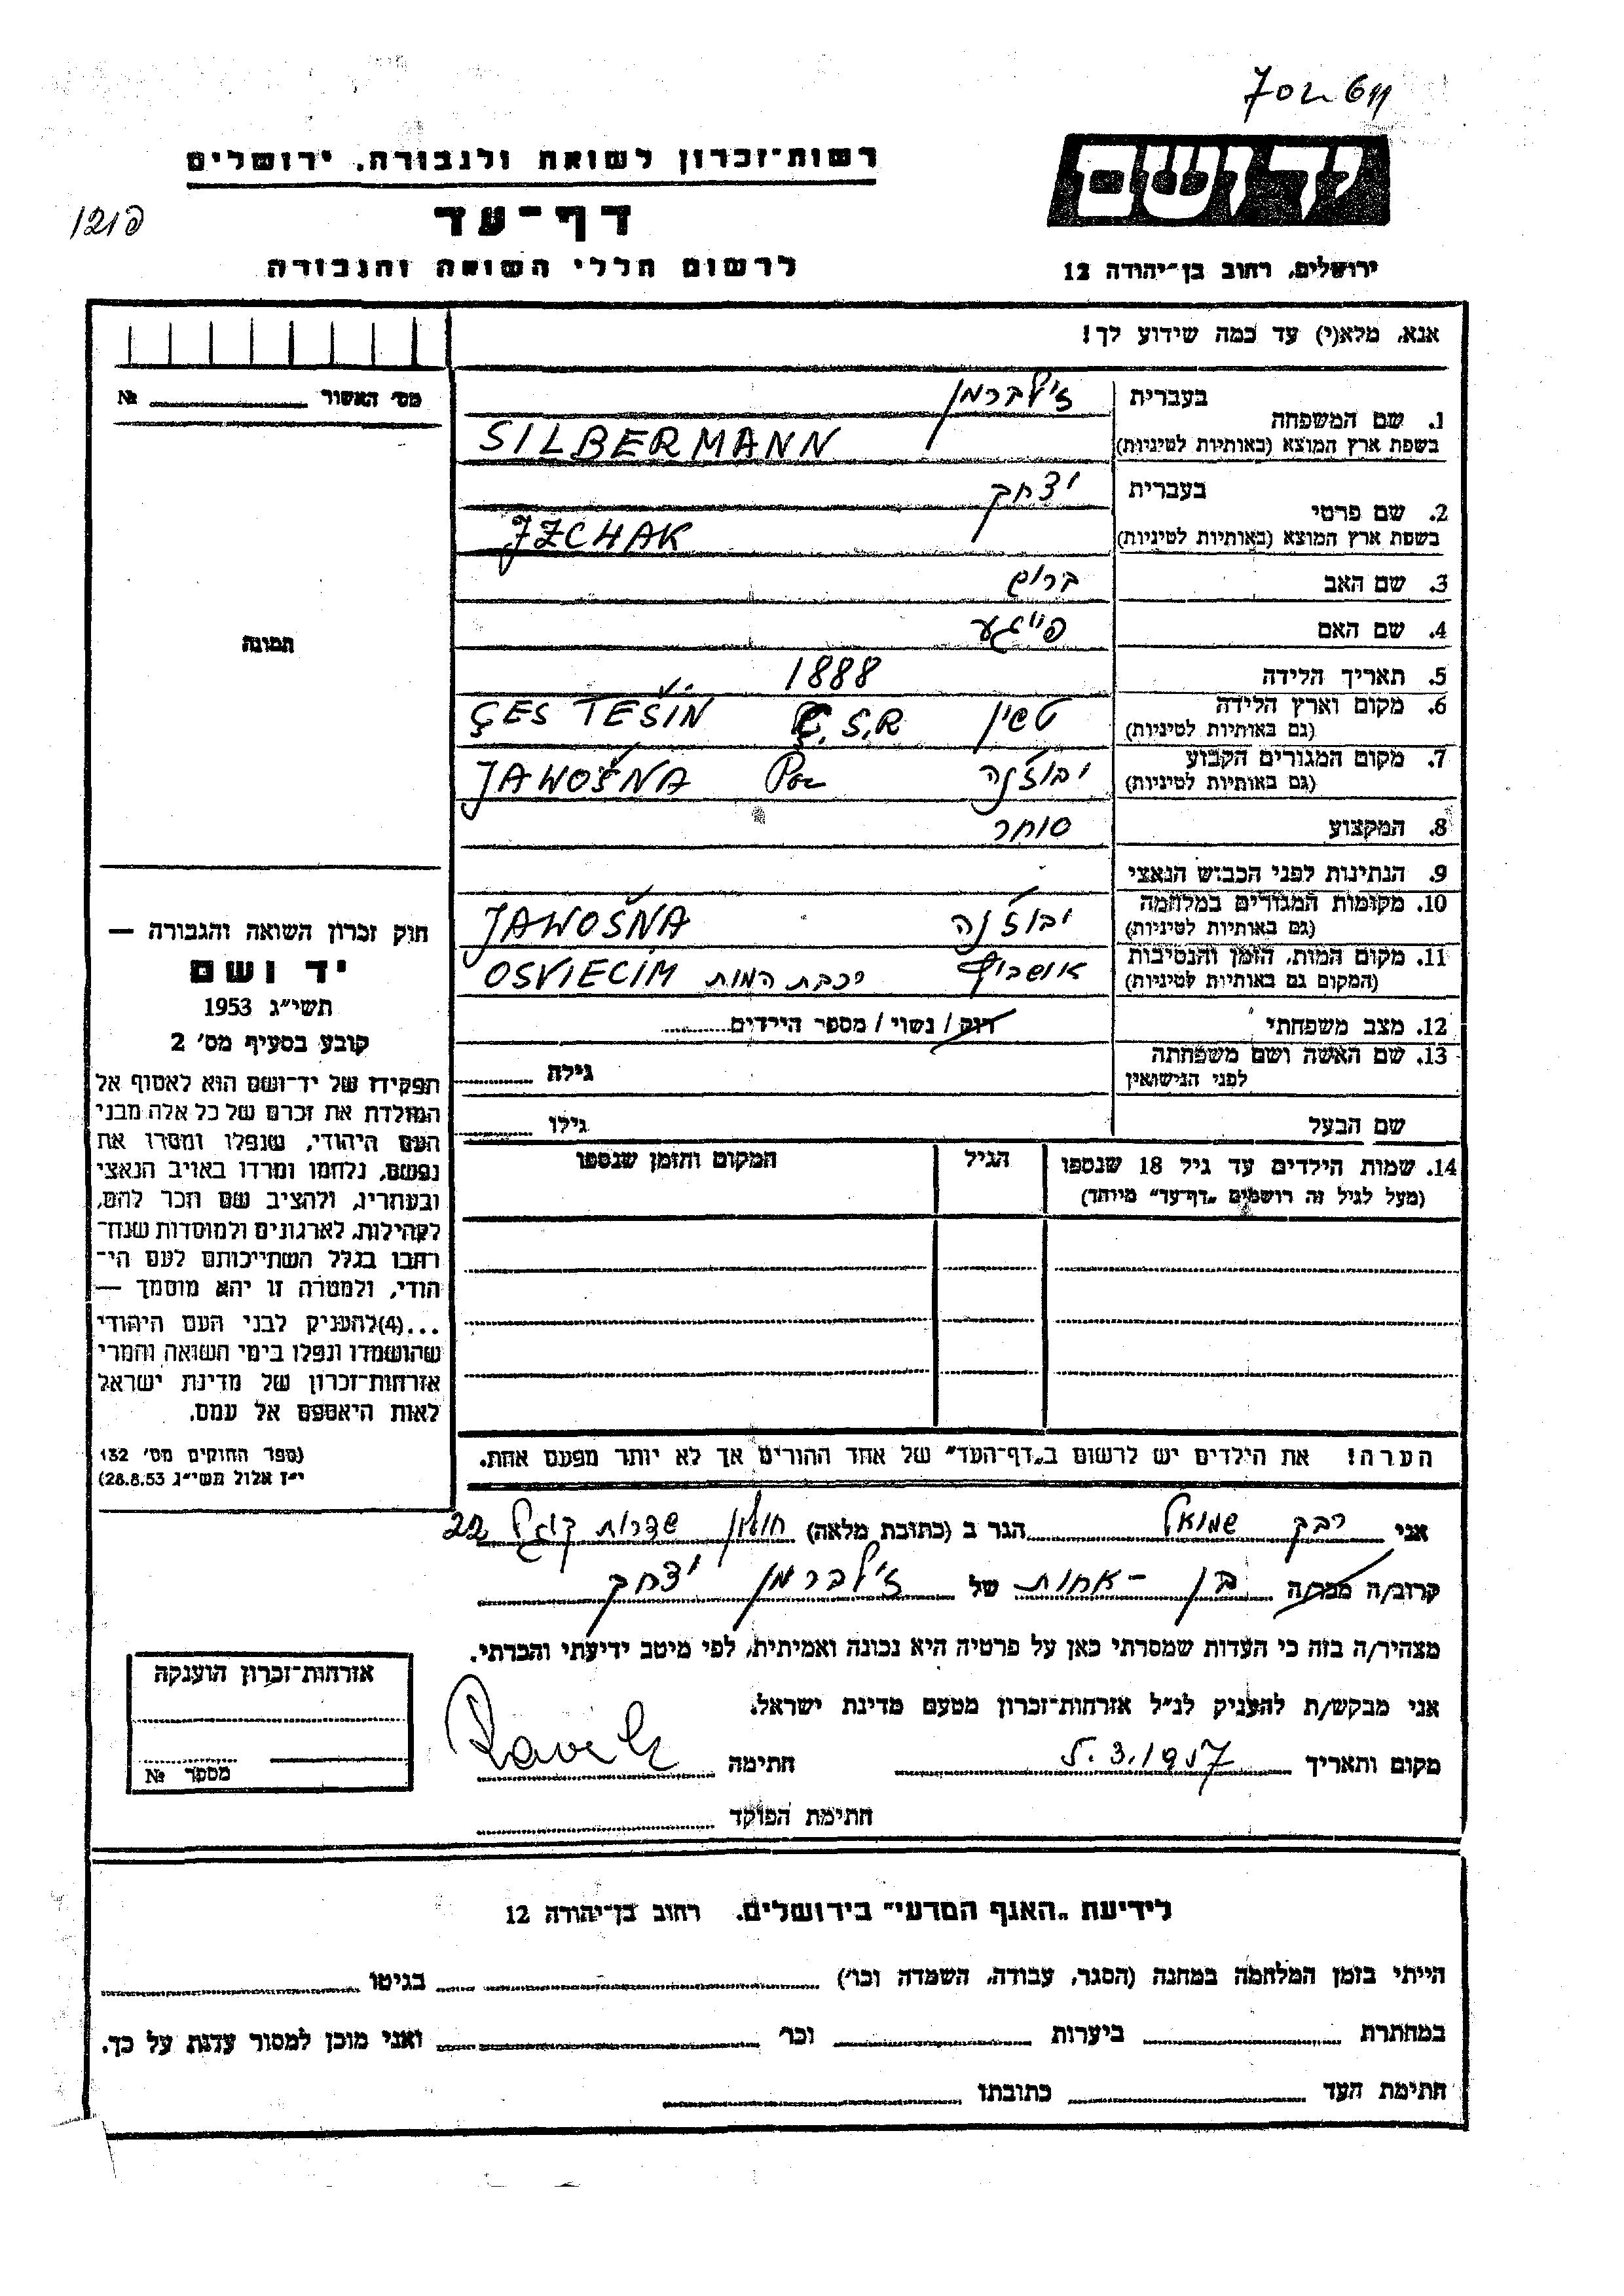 יד ושם
ירושלים, רחוב בן־יהודה 12
רשות־זכרון לשואה ולגבורה, ירושלים
דף־עד
לרשום חללי השואה והגבורה
אנא, מלא(י) עד כמה שידוע לך!
מס׳ האשור № 
תמונה
1. שם המשפחה בעברית זילברמן
בשפת ארץ המוצא (באותיות לטיניות) SILBERMANN
2. שם פרטי בעברית יצחק
בשפת ארץ המוצא (באותיות לטיניות) JZCHAK
3. שם האב ברוך
4. שם האם פייגע
5. תאריך הלידה 1888
6. מקום וארץ הלידה טשין Č.S.R ČES TEŠIN
(גם באותיות לטיניות)
7. מקום המגורים הקבוע יבוזנה JAWOŠNA
(גם באותיות לטיניות)
8. המקצוע סוחר
9. הנתינות לפני הכבוש הנאצי
10. מקומות המגורים במלחמה יבוזנה JAWOŠNA
(גם באותיות לטיניות)
11. מקום המות, הזמן והנסיבות אושביץ רכבת המות OSVIECIM
(המקום גם באותיות לטיניות)
12. מצב משפחתי רווק / נשוי / מספר הילדים
13. שם האשה ושם משפחתה גילה
לפני הנישואין
שם הבעל גילו
14. שמות הילדים עד גיל 18 שנספו הגיל המקום והזמן שנספו
(מעל לגיל זה רושמים „דף־עד” מיוחד)
הערה! את הילדים יש לרשום ב„דף־העד” של אחד ההורים אך לא יותר מפעם אחת.
חוק זכרון השואה והגבורה —
יד ושם
תשי״ג 1953
קובע בסעיף מס׳ 2
תפקידו של יד־ושם הוא לאסוף אל
המולדת את זכרם של כל אלה מבני
העם היהודי, שנפלו ומסרו את
נפשם, נלחמו ומרדו באויב הנאצי
ובעוזריו, ולהציב שם וזכר להם,
לקהילות, לארגונים ולמוסדות שנח־
רבו בגלל השתייכותם לעם הי־
הודי, ולמטרה זו יהא מוסמך —
...(4) להעניק לבני העם היהודי
שהושמדו ונפלו בימי השואה והמרי
אזרחות־זכרון של מדינת ישראל
לאות היאספם אל עמם.
(ספר החוקים מס׳ 132
י״ז אלול תשי״ג 28.8.53)
אני רבק שמואל הגר ב (כתובת מלאה) חולון שדרות קוגל 22
קרוב/ה מכר/ה בן - אחות של זילברמן יצחק
מצהיר/ה בזה כי העדות שמסרתי כאן על פרטיה היא נכונה ואמיתית, לפי מיטב ידיעתי והכרתי.
אני מבקש/ת להעניק לנ״ל אזרחות־זכרון מטעם מדינת ישראל.
מקום ותאריך 5.3.1957 חתימה
חתימת הפוקד
אזרחות־זכרון הוענקה
מספר №
לידיעת „האגף המדעי” בירושלים, רחוב בן־יהודה 12
הייתי בזמן המלחמה במחנה (הסגר, עבודה, השמדה וכו׳) בגיטו
במחתרת ביערות וכו׳ ואני מוכן למסור עדות על כך.
חתימת העד כתובתו